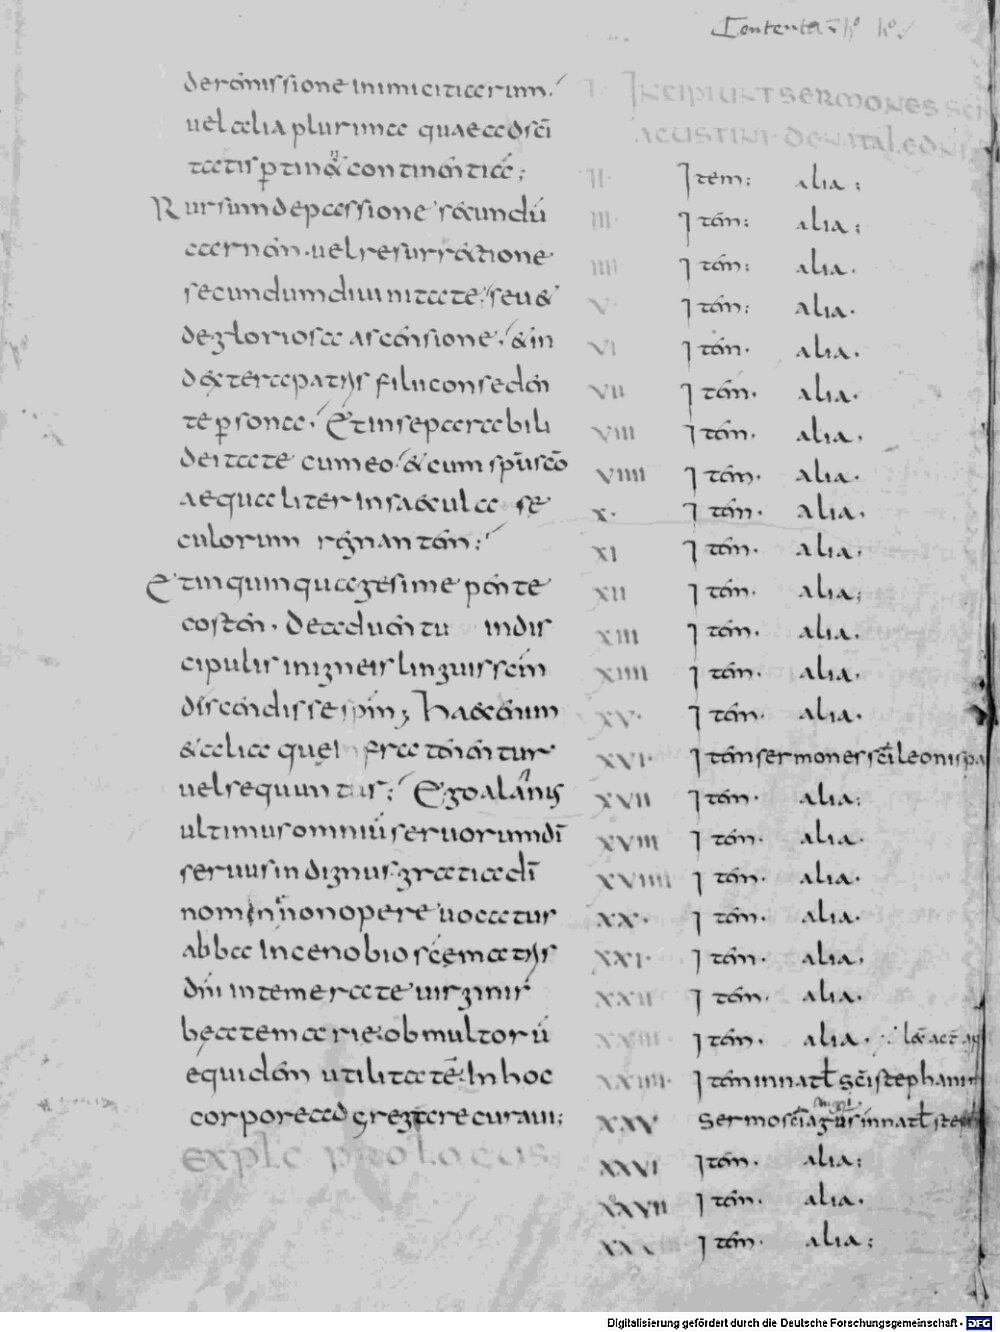 Contenta
de remissione inimicitiarum.
uel alia plurima quae ad sc̄i
tatis ꝑtin& continentiā;
Rursum de passione secundū
carnem. uel resurrectione
secundum diuinitate. seu &
de gloriosa ascensione. & in
dextera patris filii consedem
te ꝑsona. Et inseparabili
deitate cum eo. & cum sp̄u sc̄o
aequaliter in saecula se
culorum regnantem;
Et in quinquagesime pente
costen. de aduentu in dis
cipulis in igneis linguis scm̄
discendisse sp̄m; haec enim
& alia que infra tenentur
uel sequuntur; Ego alanus
ultimus omniū seruorum dī
seruus indignus gratia dī
nomine non opere uocatur
abba in cenobio scē matris
dn̄i intemerate uirginis
beate marie. ob multorū
equidem utilitatē. In hoc
corpore adgregare curaui;
explc prologus
I INCIPIUNT SERMONES SCI
AGUSTINI DE NATAL. DO
II Item: alia:
III Item: alia:
IIII Item: alia.
V Item: alia.
VI Item. alia.
VII Item. alia.
VIII Item. alia.
VIIII Item. alia.
X. Item. alia.
XI Item. alia.
XII Item. alia:
XIII Item. alia.
XIIII Item. alia.
XV. Item. alia.
XVI. Item sermones sc̄i leonis pa
XVII Item. alia:
XVIII Item. alia.
XVIIII Item. alia.
XX. Item. alia.
XXI. Item. alia.
XXII Item. alia.
XXIII Item. alia.
XXIIII. Item in natł sc̄i stephani
XXV Sermo sc̄i agus in natł ste
XXVI Item. alia:
XXVII Item. alia.
XXVIII Item. alia:
Digitalisierung gefördert durch die Deutsche Forschungsgemeinschaft - DFG